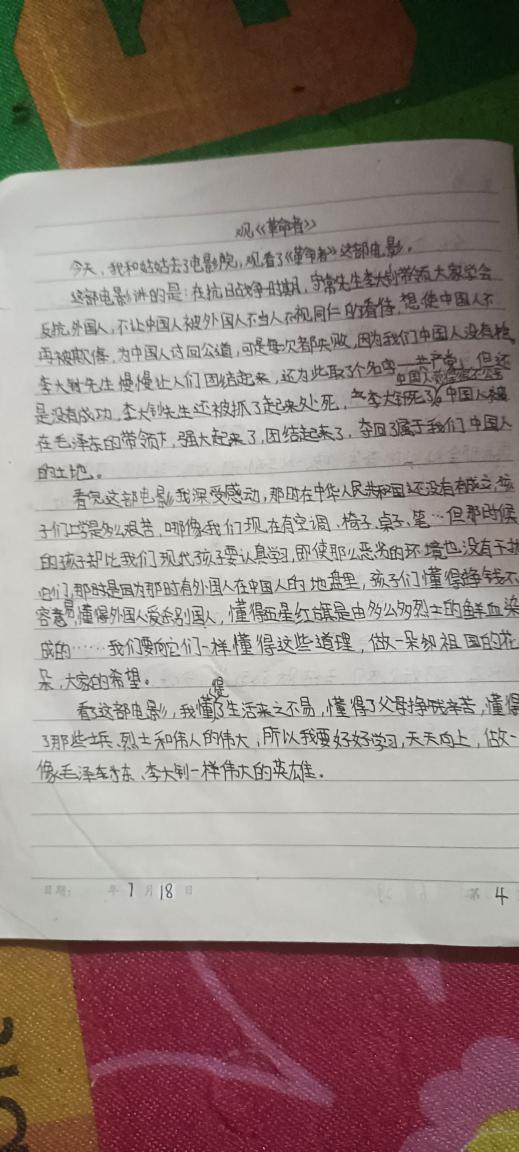 观《革命者》
今天，我和姑姑去了电影院，观看了《革命者》这部电影。
这部电影讲的是：在抗日战争时期，守常先生李大钊带领大家学会
反抗外国人，不让中国人被外国人不当人不视同仁的看待，想使中国人不
再被欺倴，为中国人讨回公道，可是每次都失败，因为我们中国人没有枪
李大钊先生慢慢让人们团结起来，还为此取了个名字——共产党，但还
是没有成功，李大钊先生还被抓了起来处死，李大钊死了，中国人
在毛泽东的带领下，强大起来了，团结起来了，夺回了属于我们中国人
的土地。
看完这部电影我深受感动，那时在中华人民共和国还没有成立，孩
子们上学是多么艰苦，哪像我们现在有空调、椅子、桌子、笔…但那时候
的孩子却比我们现代孩子要认真学习，即使那么恶劣的环境也没有干扰
们，那时是因为那时有外国人在中国人的地盘里，孩子们懂得挣钱不
容易，懂得外国人爱杀别国人，懂得五星红旗是由多么多烈士的鲜血染
成的……我们要向它们一样懂得这些道理，做一朵幼祖国的花
朵，大家的希望。
看了这部电影，我懂得了生活来之不易，懂得了父母挣钱辛苦，懂得
了那些士兵、烈士和伟人的伟大，所以我要好好学习，天天向上，做一
像毛泽东、李大钊一样伟大的英雄。
日期： 年 7 月 18 日 第 4